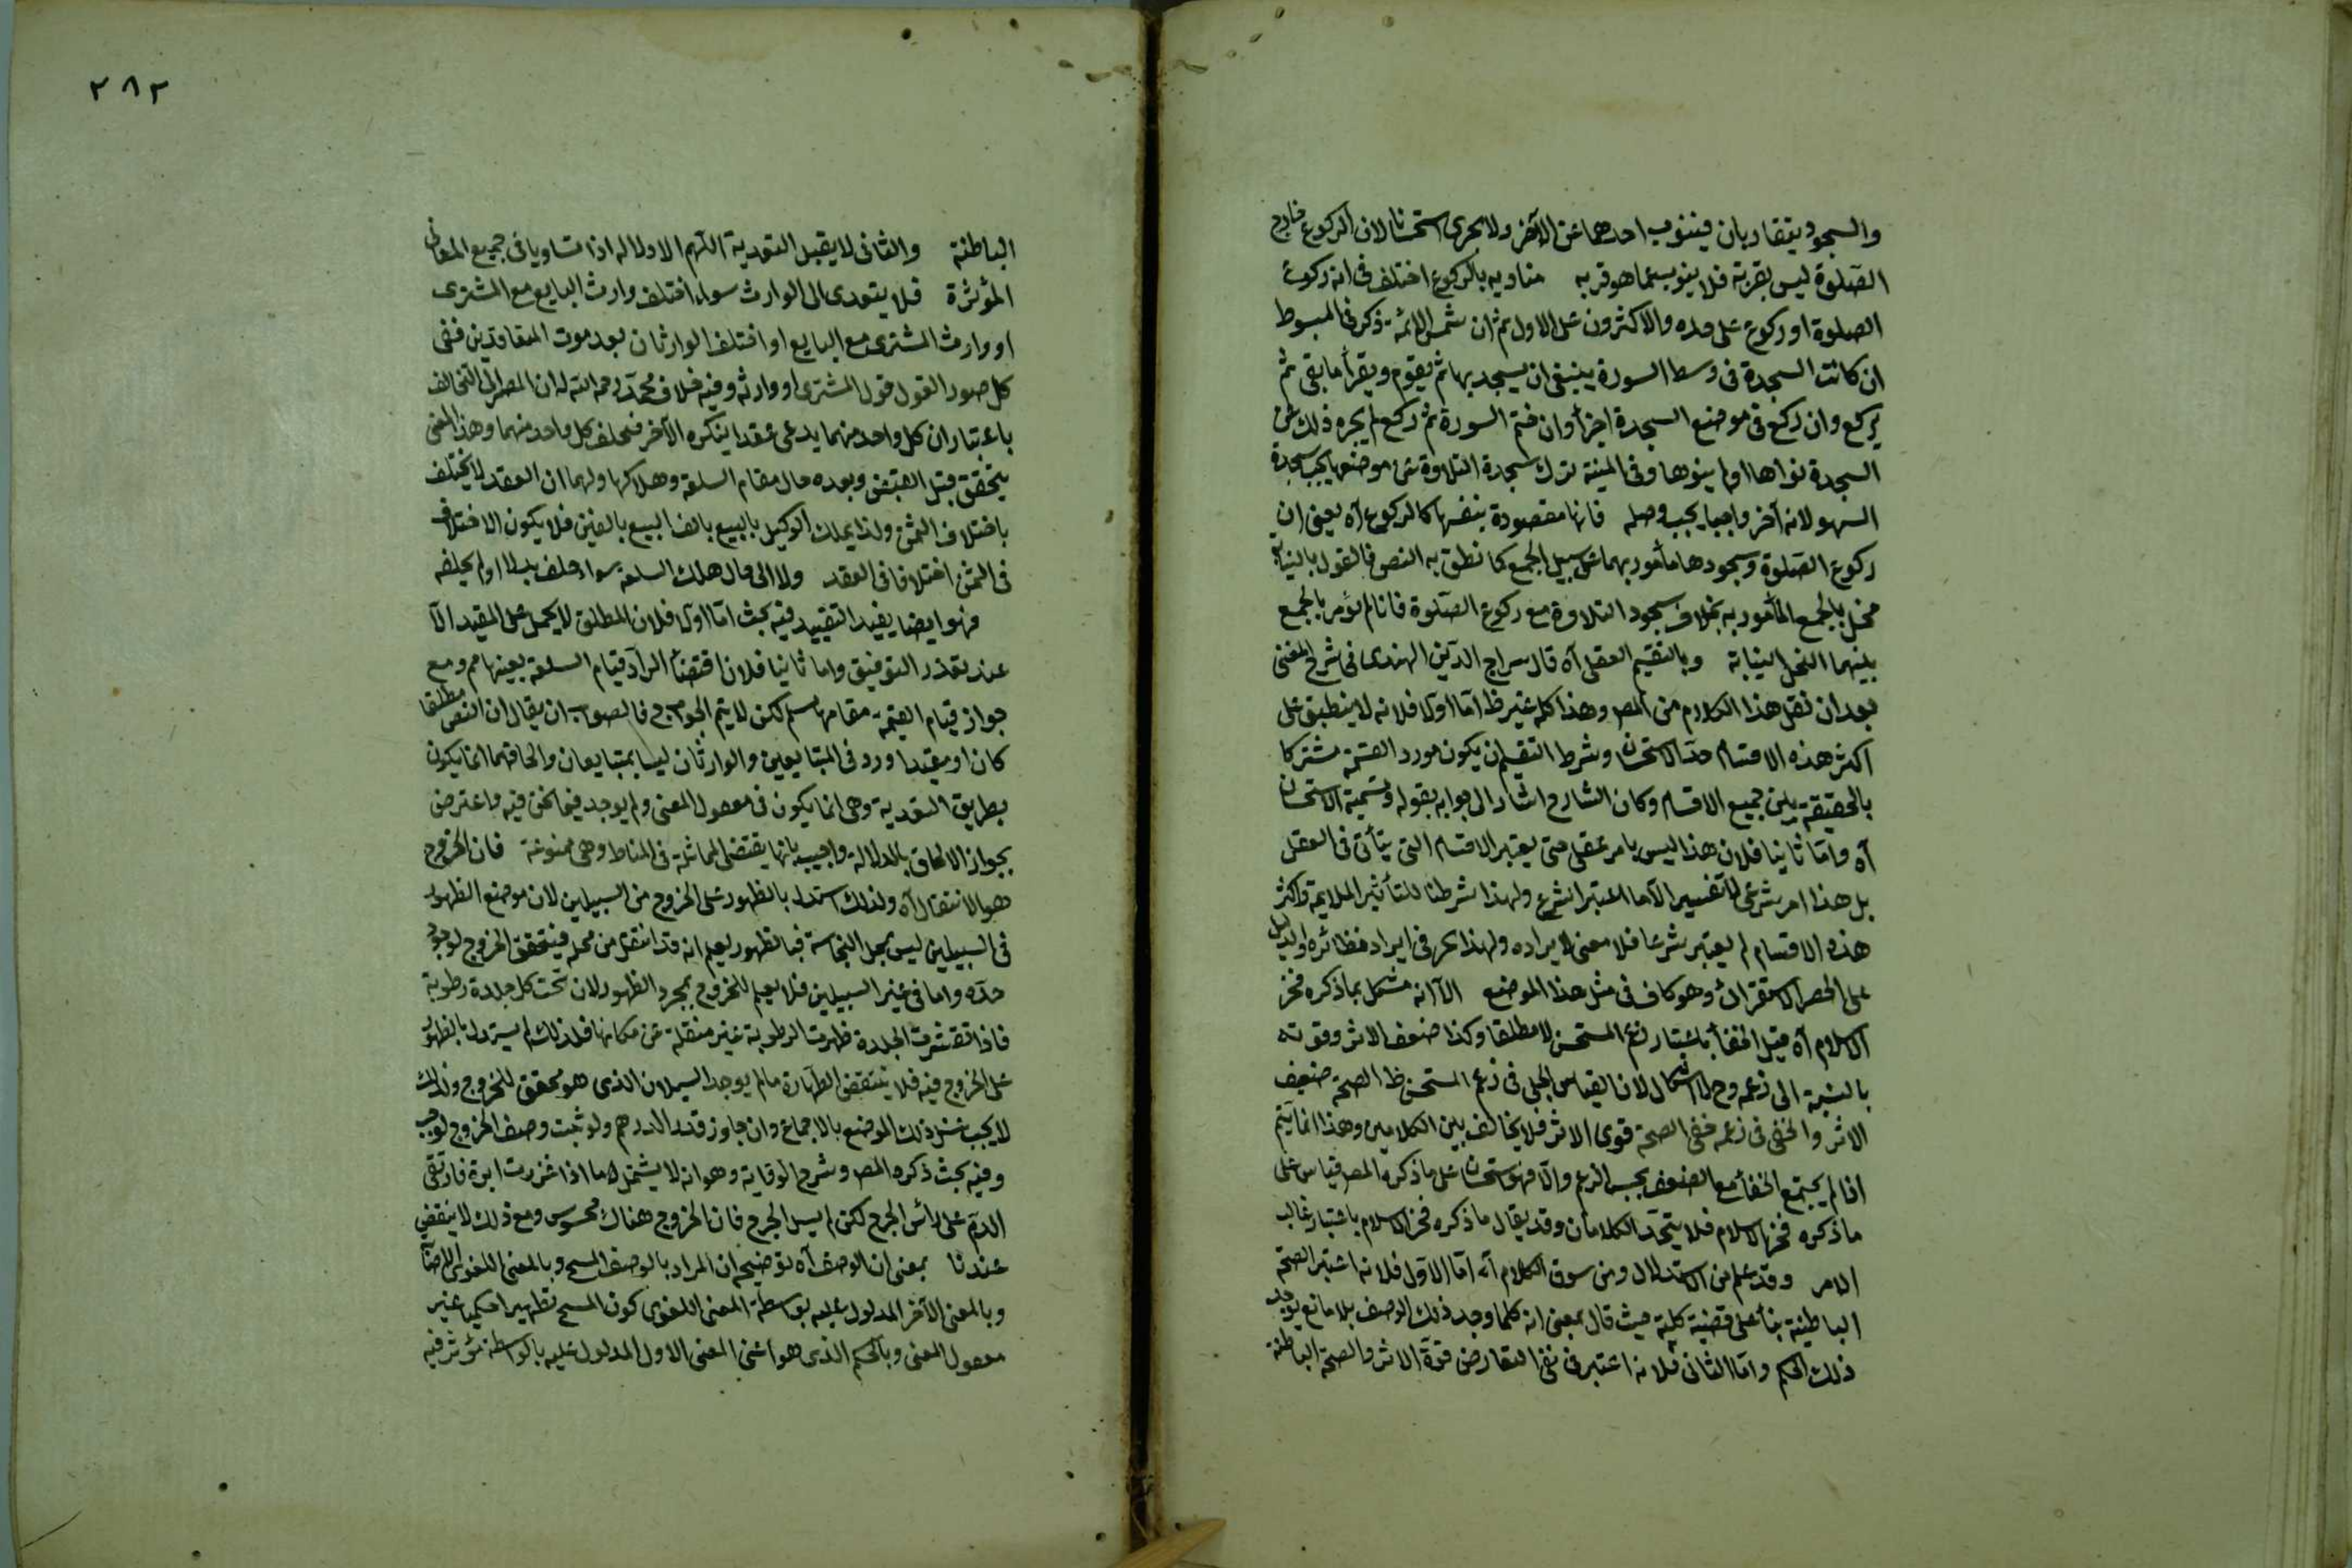 والسجود يتقاربان فينوب احدهما عن الآخر ولا يجزى استحسانا لان الركوع خارج
الصلوة ليس بقربة فلا ينوب عما هو قربه متاديه بالركوع اختلف فى انه ركوع
الصلوة او ركوع على حده والاكثرون على الاول ثم ان شمس الائمة ذكر فى المبسوط
ان كانت السجدة فى وسط السورة ينبغى ان يسجد بها ثم يقوم ويقرأ ما بقى ثم
يركع وان ركع فى موضع السجدة اجزأ وان ختم السورة ثم ركع لم يجزه ذلك عن
السجدة نواها او لم ينوها وفى المنية ترك سجدة التلاوة عن موضعها يجب سجدة
السهو لانه آخر واجبا يجب وصله فانها مقصودة بنفسها كالركوع آه يعنى ان
ركوع الصلوة وسجودها مأمور بهما على سبيل الجمع كما نطق به النص فالقول بالنيابة
مخل بالجمع المأمور به بخلاف سجود التلاوة مع ركوع الصلوة فانا لم نؤمر بالجمع
بينهما النخل النيابة وبالتقسيم العقلى آه قال سراج الدين الهندى فى شرح المغنى
بعد ان نقل هذا الكلام من المص وهذا كله غير ظ اما اولا فلانه لا ينطبق على
اكثر هذه الاقسام حد الاستحسان وشرط التقسيم ان يكون مورد القسمة مشتركا
بالحقيقة بين جميع الاقسام وكان الشارح اشار الى جوابه بقوله وتسمية الاستحسان
آه واما ثانيا فلان هذا ليس بامر عقلى حتى يعتبر الاقسام التى يتأتى فى العقل
بل هذا امر شرعى لا تفسير الا ما اعتبر الشرع ولهذا شرطنا للتأثير الملايمة واكثر
هذه الاقسام لم يعتبر شرعا فلا معنى لايراده ولهذا عجز فى ايراد نظائره والدليل
على الحصر الاستقرائى وهو كاف فى مثل هذا الموضع الا انه مشكل بما ذكره فخر
الاسلام آه قيل الخفأ باعتبار زعم المستحسن لا مطلقا وكذا ضعف الاثر وقوته
بالنسبة الى زعمه وح لا اشكال لان القياس الجلى فى زعم المستحسن ظ الصحة ضعيف
الاثر والخفى فى زعمه خفى الصحة قوى الاثر فلا يخالف بين الكلامين وهذا انما يتم
اذا لم يجتمع الخفأ مع الضعف بحسب الزعم والا فهو استحسان على ما ذكره المص قياس على
ما ذكره فخر الاسلام فلا يتحد الكلامان وقد يقال ما ذكره فخر الاسلام باعتبار غالب
الامر وقد علم من الاستدلال ومن سوق الكلام آه اما الاول فلانه اعتبر الصحة
الباطنية بنأ على قضية كلية حيث قال بمعنى انه كلما وجد ذلك الوصف بلا مانع يوجد
ذلك الحكم واما الثانى فلانه اعتبر فى نفى التعارض قوة الاثر والصحة الباطنة
٢٨٢
الباطنة والثانى لا يقبل التعدية اللهم الا دلاله اذا تساويا فى جميع المعانى
المؤثرة فلا يتعدى الى الوارث سواء اختلف وارث البايع مع المشترى
او وارث المشترى مع البايع او اختلف الوارثان بعد موت المتعاقدين ففى
كل صور القول قول المشترى او وارثه وفيه خلاف محمد رحمه الله له ان المصير الى التحالف
باعتبار ان كل واحد منهما يدعى عقدا ينكره الآخر فيحلف كل واحد منهما وهذا المعنى
يتحقق قبل القبض وبعده حال مقام السلعة وهلاكها ولهما ان العقد لا يختلف
باختلاف الثمن ولذا يملك الوكيل بالبيع بالف البيع بالفين فلا يكون الاختلاف
فى الثمن اختلافا فى العقد ولا الى حال هلاك السلعة سواء خلف بدلا او لم يخلفه
فهو ايضا يفيد التقييد فيه بحث اما اولا فلان المطلق لا يحمل على المقيد الا
عند تعذر التوفيق واما ثانيا فلان اقتضأ الراد قيام السلعة بعينها مم ومع
جواز قيام القيمة مقامها مسلم لكن لا يتم الجواب ح فالصواب ان يقال ان النص مطلقا
كان او مقيدا ورد فى المتبايعين والوارثان ليسا بمتبايعان والحاقهما انما يكون
بطريق التعدية وهى انما يكون فى معقول المعنى ولم يوجد فيما نحن فيه واعترض
بجواز الالحاق بالدلالة واجيب بانها يقتضى المماثلة فى المناط وهى ممنوعة فان الخروج
هو الانتقال آه ولذلك استدل بالظهور على الخروج من السبيلين لان موضع الظهور
فى السبيلين ليس محل النجاسة فبالظهور يعلم انه قد انتقل من محله فيتحقق الخروج لوجود
حده واما فى غير السبيلين فلا يعلم الخروج بمجرد الظهور لان تحت كل جلدة رطوبة
فاذا تقشرت الجلدة ظهرت الرطوبة غير منتقلة عن مكانها فلذلك لم يستدل بالظهور
على الخروج فيه فلا ينتقض الطهارة ما لم يوجد السيلان الذى هو محقق للخروج ولذلك
لا يجب غسل ذلك الموضع بالاجماع وان جاوز قدر الدرهم ولو ثبت وصف الخروج لوجب
وفيه بحث ذكره المص وشرح الوقاية وهو انه لا يشتمل لما اذا غرزت ابرة فارتقى
الدم على رأس الجرح لكن لم يسل الجرح فان الخروج هناك محسوس ومع ذلك لا ينقض
عندنا بمعنى ان الوصف آه توضيحه ان المراد بالوصف المسح وبالمعنى اللغوى الاصابة
وبالمعنى الآخر المدلول عليه بواسطة المعنى اللغوى كون المسح تطهيرا حكميا غير
معقول المعنى وبالحكم الذى هو اعنى المعنى الاول المدلول عليه بالواسطة مؤثر فيه